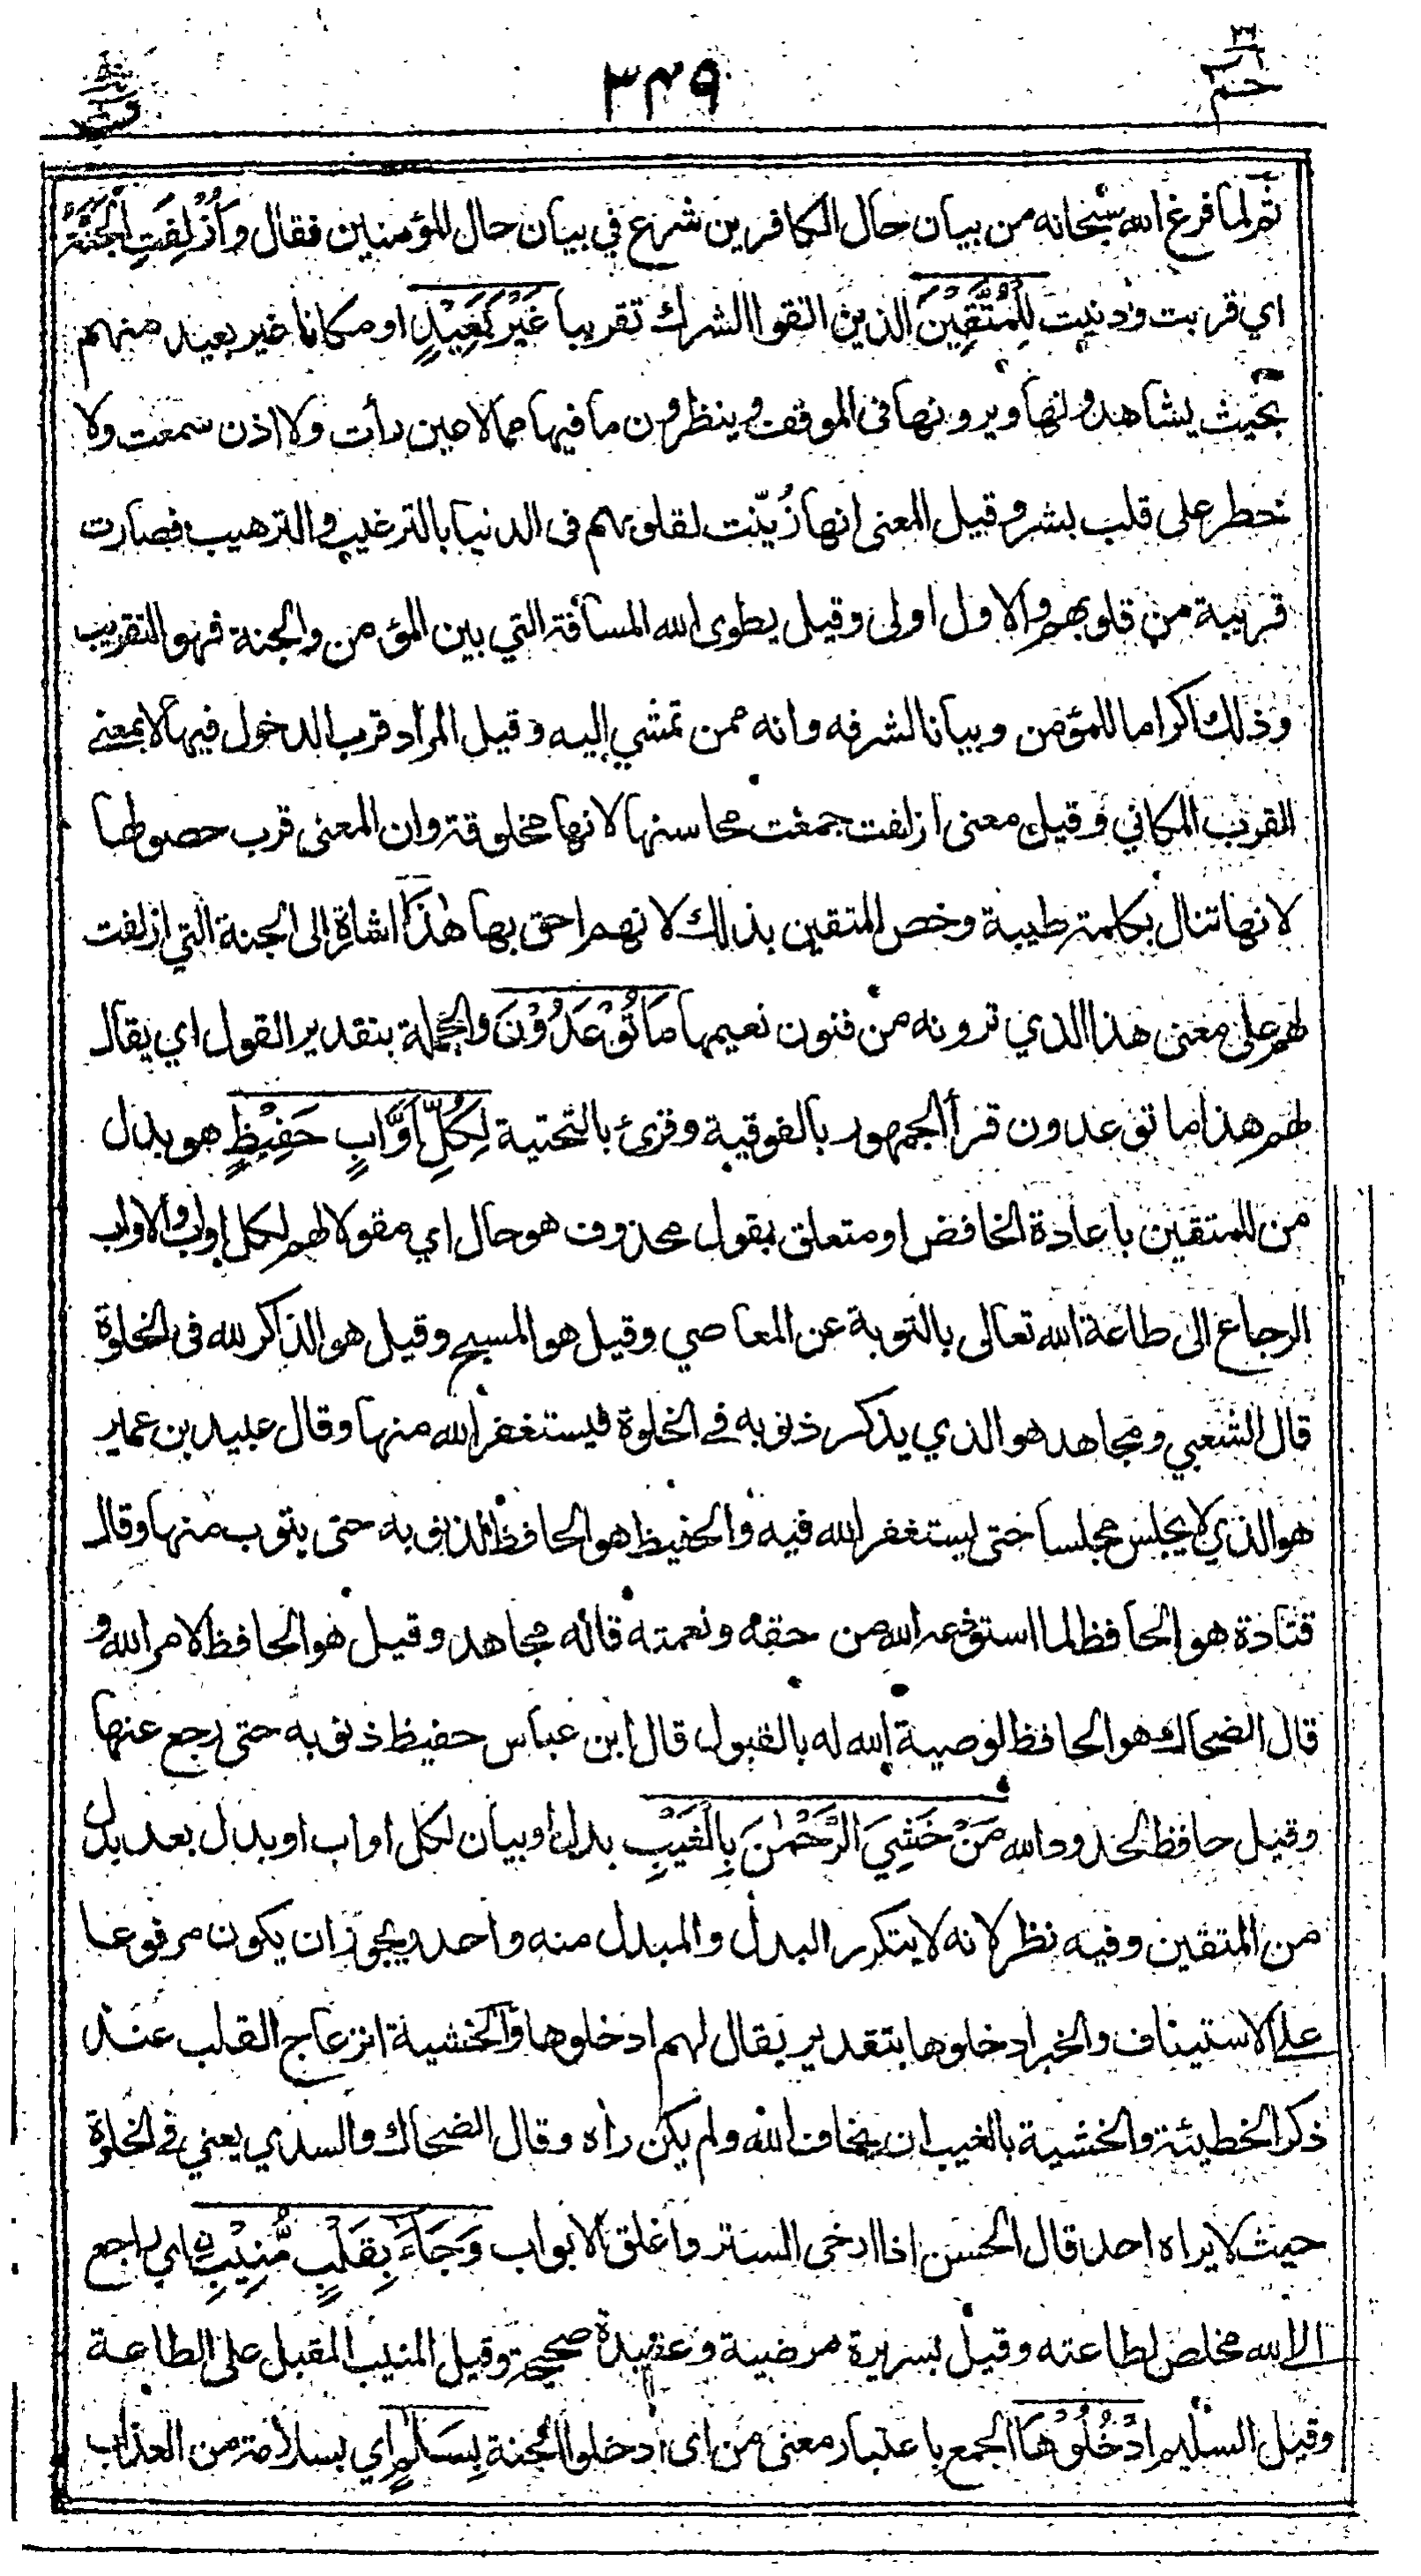 حم ٢٦
٣٤٩
ق
ثم لما فرغ الله سبحانه من بيان حال الكافرين شرع في بيان حال المؤمنين فقال وَأُزْلِفَتِ الْجَنَّةُ
اي قربت ودنيت لِلْمُتَّقِيْنَ الذين اتقوا الشرك تقريبا غَيْرَ بَعِيْدٍ او مكانا غير بعيد منهم
بحيث يشاهدونها ويرونها في الموقف وينظرون ما فيها مما لا عين رأت ولا اذن سمعت ولا
خطر على قلب بشر وقيل المعنى انها زُيّنت لقلوبهم فى الدنيا بالترغيب والترهيب فصارت
قريبة من قلوبهم والاول اولى وقيل يطوى الله المسافة التي بين المؤمن والجنة فهو التقريب
وذلك اكراما للمؤمن وبيانا لشرفه وانه ممن تمشي اليه وقيل المراد قرب الدخول فيها لا بمعنى
القرب المكاني وقيل معنى ازلفت جمعت محاسنها لانها مخلوقة وان المعنى قرب حصولها
لانها تنال بكلمة طيبة وخص المتقين بذلك لانهم احق بها هٰذَا اشارة الى الجنة التي ازلفت
لهم على معنى هذا الذي ترونه من فنون نعيمها مَا تُوْعَدُوْنَ والجملة بتقدير القول اي يقال
لهم هذا ما توعدون قرأ الجمهور بالفوقية وقرئ بالتحتية لِكُلِّ اَوَّابٍ حَفِيْظٍ هو بدل
من للمتقين باعادة الخافض او متعلق بقول محذوف هو حال اي مقولا لهم لكل اواب والاواب
الرجاع الى طاعة الله تعالى بالتوبة عن المعاصي وقيل هو المسبح وقيل هو الذاكر لله فى الخلوة
قال الشعبي ومجاهد هو الذي يذكر ذنوبه في الخلوة فيستغفر الله منها وقال عبيد بن عمير
هو الذي لا يجلس مجلسا حتى يستغفر الله فيه والحفيظ هو الحافظ لذنوبه حتى يتوب منها وقال
قتادة هو الحافظ لما استودعه الله من حقه ونعمته قاله مجاهد وقيل هو الحافظ لامر الله و
قال الضحاك هو الحافظ لوصية الله له بالقبول قال ابن عباس حفيظ ذنوبه حتى رجع عنها
وقيل حافظ لحدود الله مَنْ خَشِيَ الرَّحْمٰنَ بِالْغَيْبِ بدل او بيان لكل اواب او بدل بعد بدل
من المتقين وفيه نظر لانه لا يتكرر البدل والمبدل منه واحد ويجوز ان يكون مرفوعا
على الاستيناف والخبر ادخلوها بتقدير يقال لهم ادخلوها والخشية انزعاج القلب عند
ذكر الخطيئة والخشية بالغيب ان يخاف الله ولم يكن رأه وقال الضحاك والسدي يعني في الخلوة
حيث لا يراه احد قال الحسن اذا ارخى الستر واغلق الابواب وَجَاءَ بِقَلْبٍ مُّنِيْبٍ اي راجع
الى الله مخلص لطاعته وقيل بسريرة مرضية وعقيدة صحيحة وقيل المنيب المقبل على الطاعة
وقيل السليم ادْخُلُوْهَا الجمع باعتبار معنى من اى ادخلوا الجنة بِسَلٰمٍ اي بسلامة من العذاب